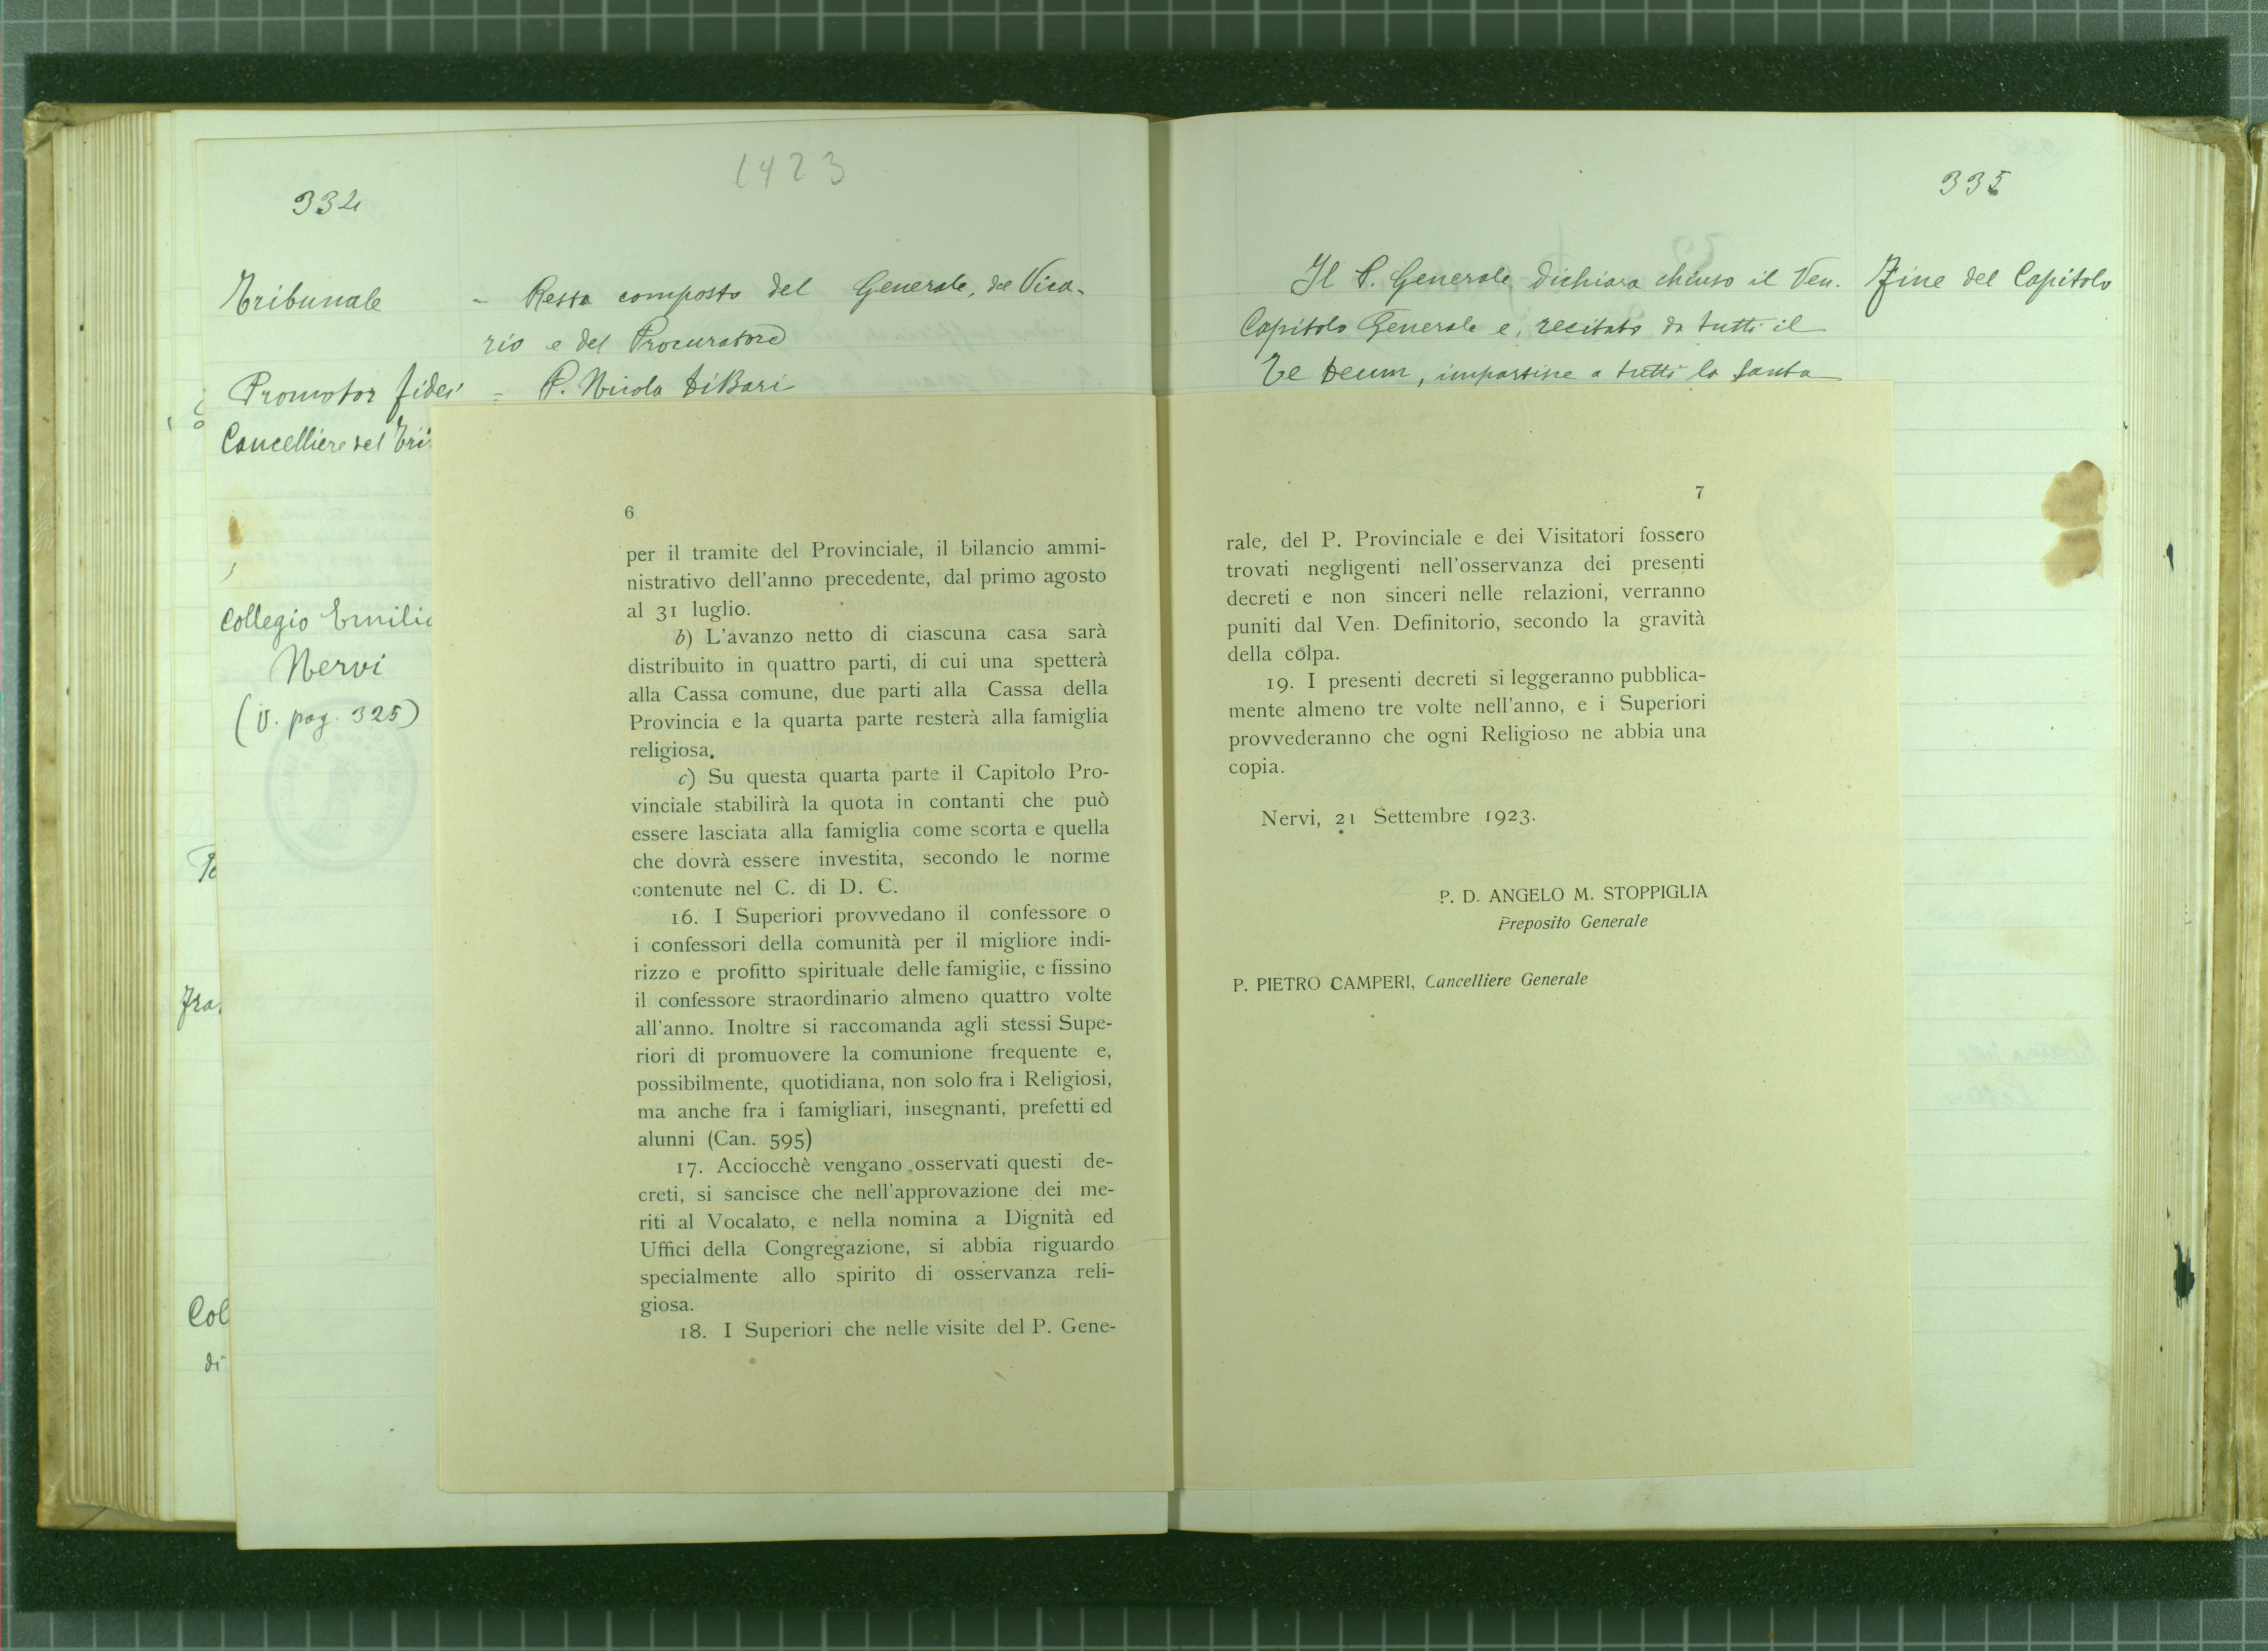 1923
334
Tribunale - Resta composto del Generale, del Vica-
rio e del Procuratore
Promotor fidei = P. Nicola Di Bari
Cancelliere del Tri
Collegio Emilia
Nervi
(V. pag. 325)
Fra
Col
di
6
per il tramite del Provinciale, il bilancio ammi-
nistrativo dell'anno precedente, dal primo agosto
al 31 luglio.
b) L'avanzo netto di ciascuna casa sarà
distribuito in quattro parti, di cui una spetterà
alla Cassa comune, due parti alla Cassa della
Provincia e la quarta parte resterà alla famiglia
religiosa.
c) Su questa quarta parte il Capitolo Pro-
vinciale stabilirà la quota in contanti che può
essere lasciata alla famiglia come scorta e quella
che dovrà essere investita, secondo le norme
contenute nel C. di D. C.
16. I Superiori provvedano il confessore o
i confessori della comunità per il migliore indi-
rizzo e profitto spirituale delle famiglie, e fissino
il confessore straordinario almeno quattro volte
all'anno. Inoltre si raccomanda agli stessi Supe-
riori di promuovere la comunione frequente e,
possibilmente, quotidiana, non solo fra i Religiosi,
ma anche fra i famigliari, insegnanti, prefetti ed
alunni (Can. 595)
17. Acciocchè vengano osservati questi de-
creti, si sancisce che nell'approvazione dei me-
riti al Vocalato, e nella nomina a Dignità ed
Uffici della Congregazione, si abbia riguardo
specialmente allo spirito di osservanza reli-
giosa.
18. I Superiori che nelle visite del P. Gene-
335
Il P. Generale dichiara chiuso il Ven. Fine del Capitolo
Capitolo Generale e, recitato da tutti il
Te Deum, impartisce a tutti la santa
7
rale, del P. Provinciale e dei Visitatori fossero
trovati negligenti nell'osservanza dei presenti
decreti e non sinceri nelle relazioni, verranno
puniti dal Ven. Definitorio, secondo la gravità
della colpa.
19. I presenti decreti si leggeranno pubblica-
mente almeno tre volte nell'anno, e i Superiori
provvederanno che ogni Religioso ne abbia una
copia.
Nervi, 21 Settembre 1923.
P. D. ANGELO M. STOPPIGLIA
Preposito Generale
P. PIETRO CAMPERI, Cancelliere Generale